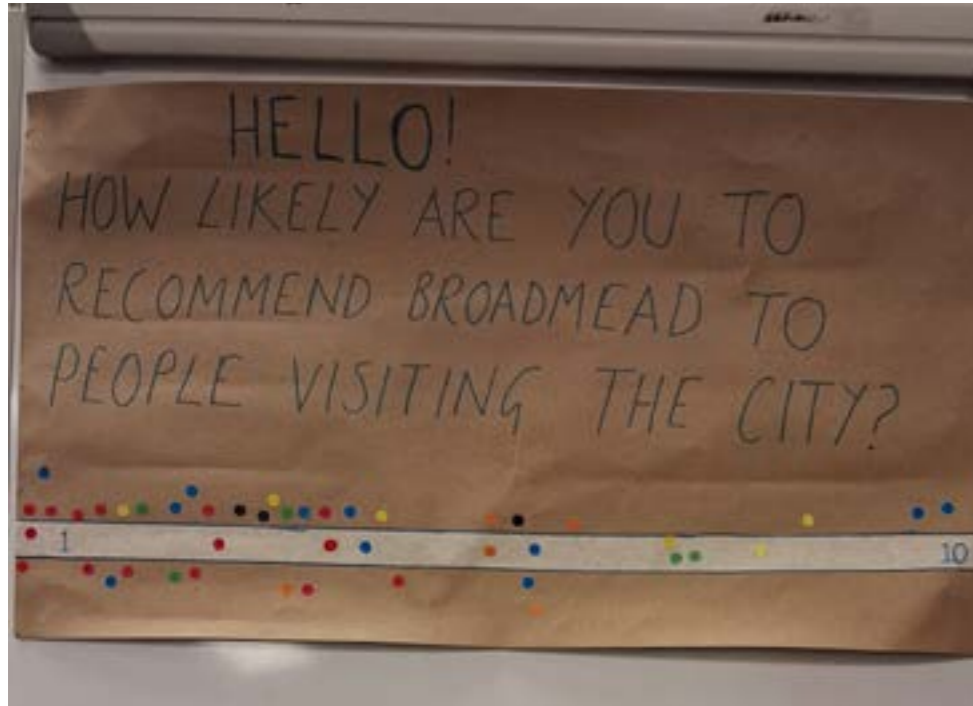 HELLO!
HOW LIKELY ARE YOU TO
RECOMMEND BROADMEAD TO
PEOPLE VISITING THE CITY?
1 10